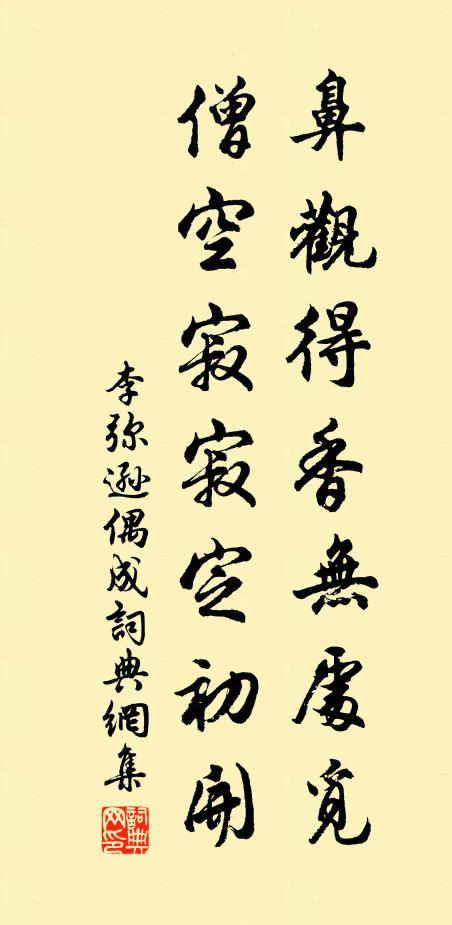 鼻觀得香無處覓
僧空寂寂定初開
李弥遜偶成詞典網集
詞典网印